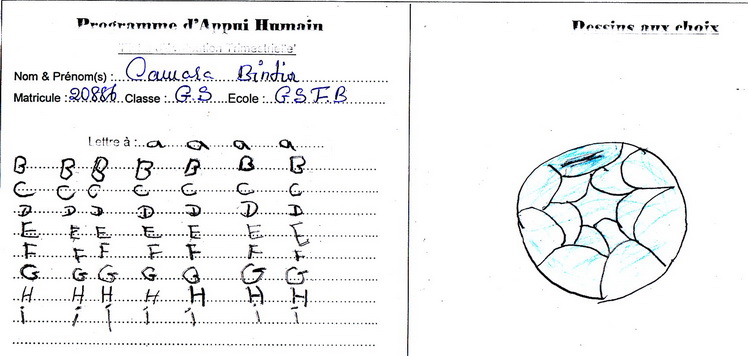 Programme d'Appui Humain
Trimestrielle'
Nom & Prénom(s) : Camara Bintia
Matricule : 20886 Classe : G.S Ecole : G S F.B
Lettre à : a a a a
B B B B B B B
C C C C C C C
D D D D D D D
E E E E E E E
F F F F F F F
G G G G G G G
H H H H H H H
i i i i i i i
Dessins aux choix